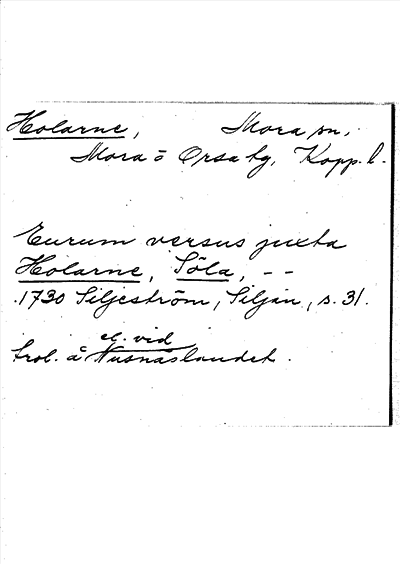 Holarne, Mora sn,
Mora o Orsa tg, Kopp. l.
Eurum versus juxta
Holarne, Söla, - -
1730 Siljeström, Siljan, s. 31.
el. vid
trol. å Nusnäslandet.